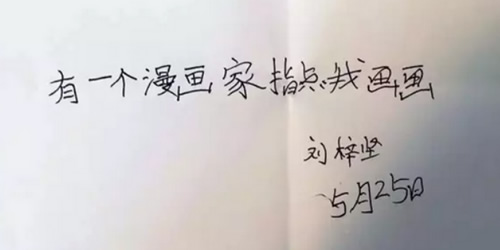 有一个漫画家指点我画画
刘梓坚
5月25日